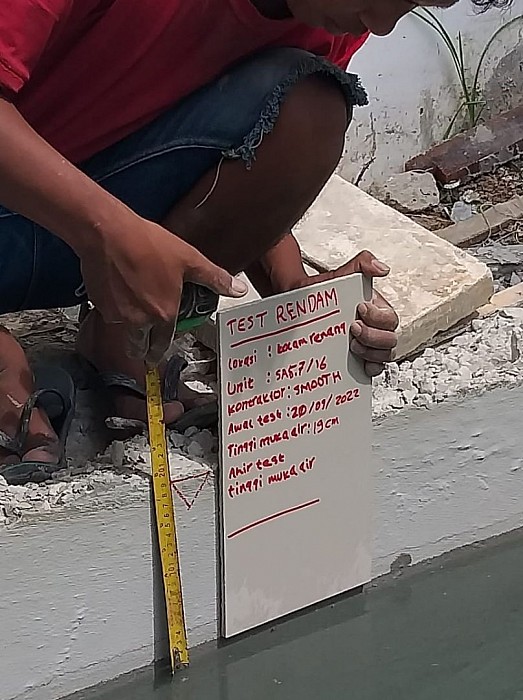 TEST RENDAM
Lokasi : kolam renang
Unit : SA5.7/16
Kontraktor : SMOOTH
Awal test : 20/09/2022
Tinggi muka air : 19 cm
Ahir test
tinggi muka air